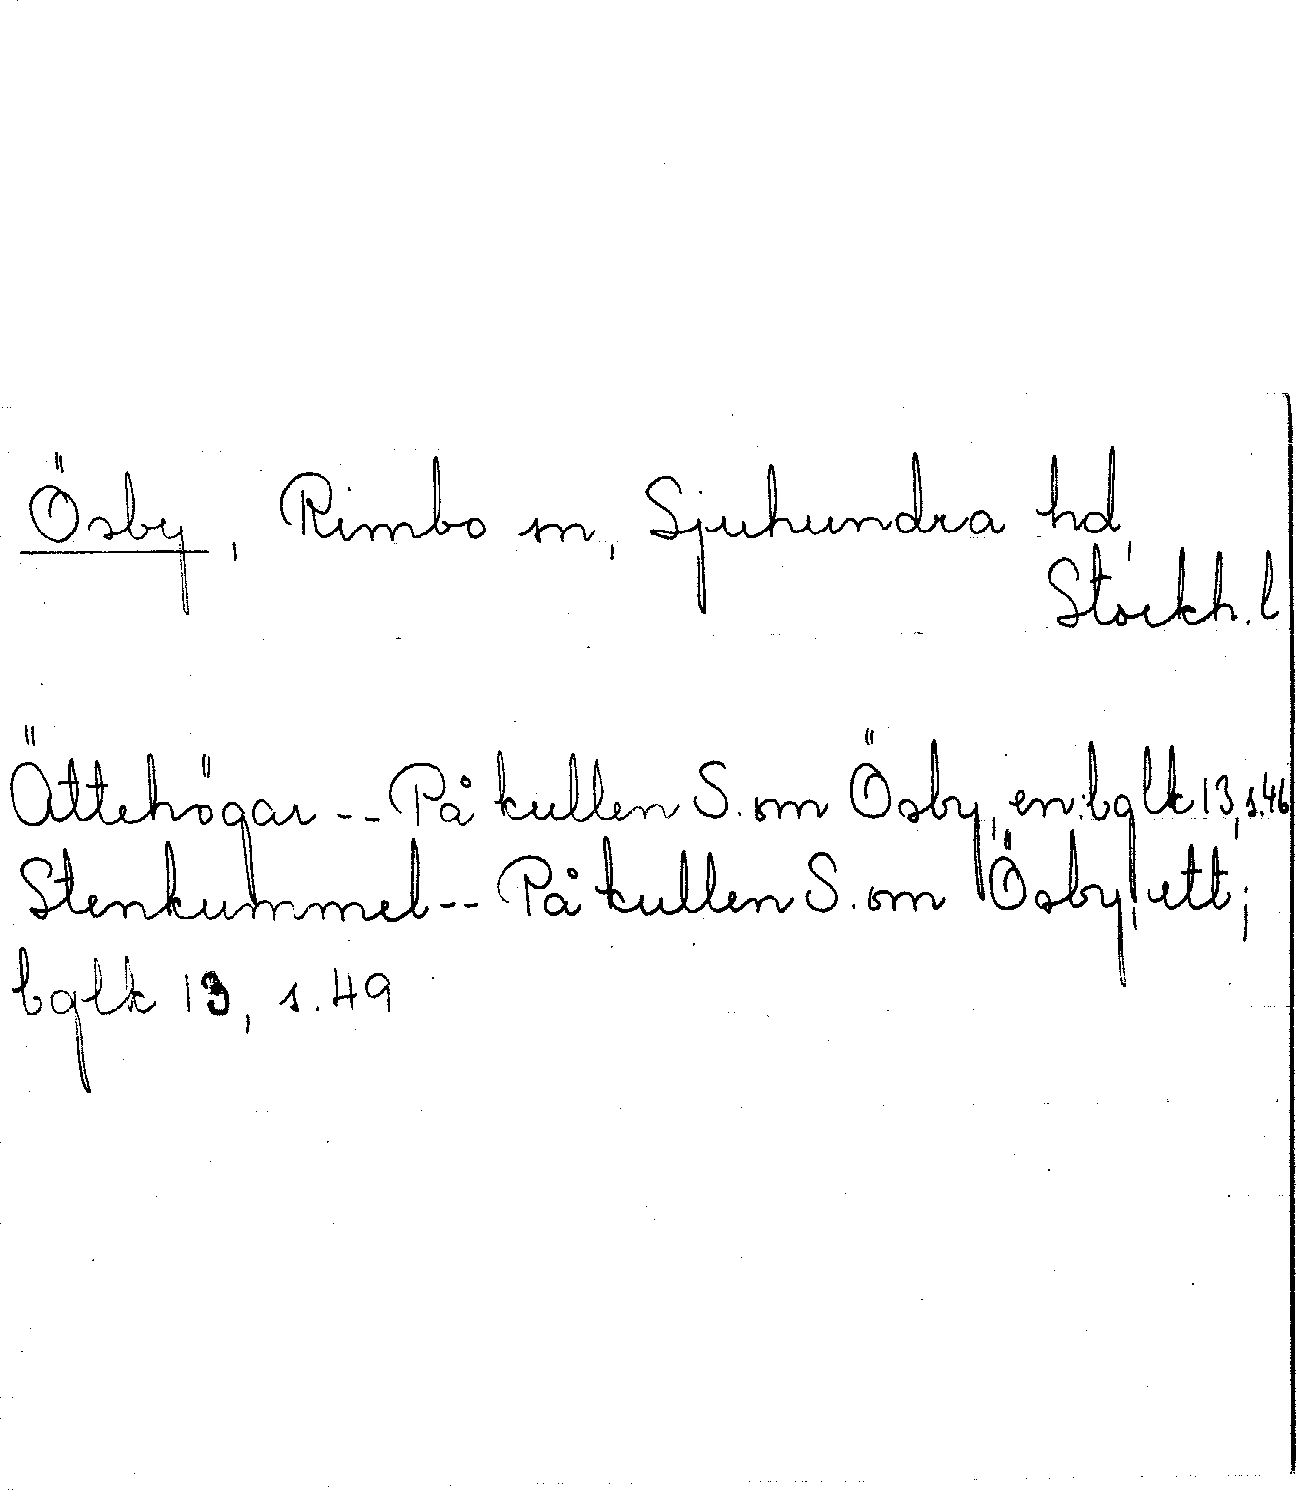 Ösby, Rimbo sn, Sjuhundra hd,
Stockh. l
Ättehögar -- På kullen S. om Ösby, en; bglk 13, s. 46
Stenkummel -- På kullen S. om Ösby, ett;
bglk 13, s. 49